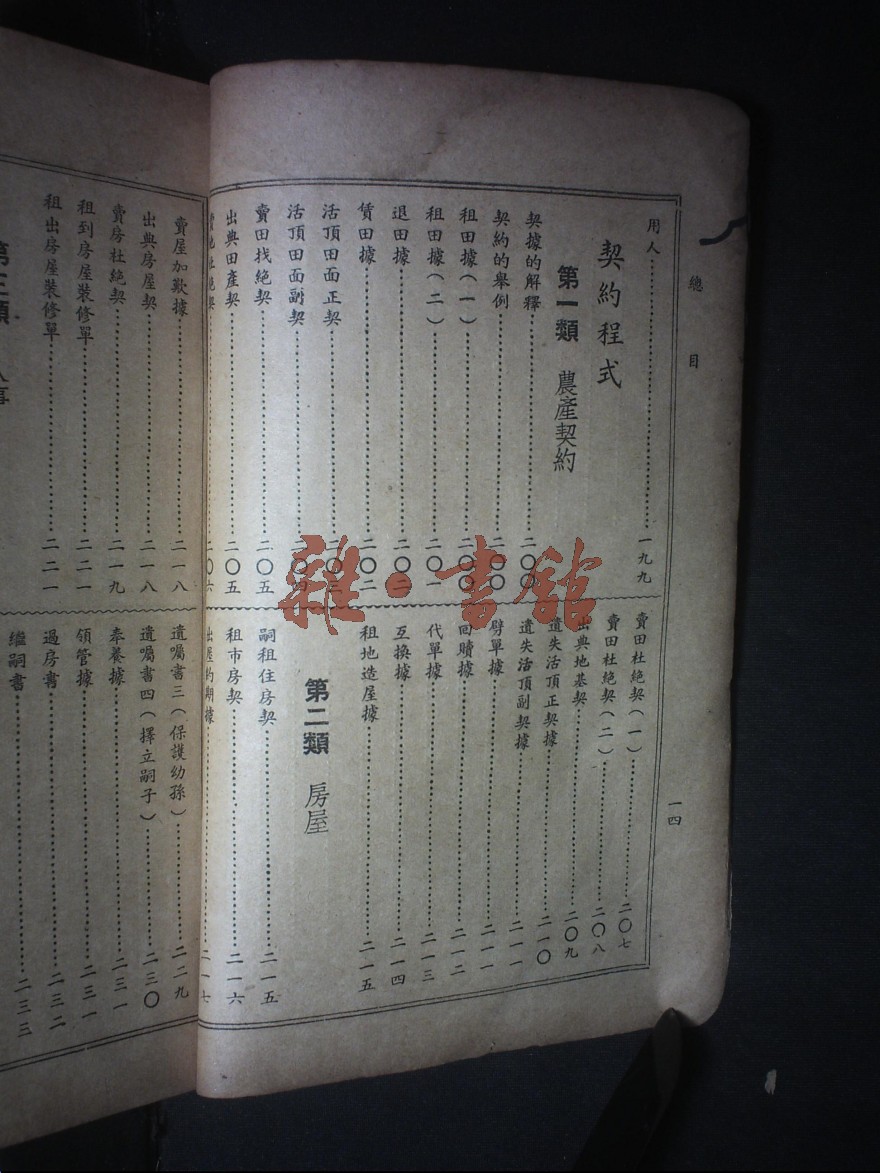 總目
一四
用人一九九
契約程式
第一類 農產契約
契據的解釋二〇〇
契約的舉例二〇〇
租田據(一)二〇〇
租田據(二)二〇一
退田據二〇二
賃田據二〇二
活頂田面正契二〇三
活頂田面副契二〇四
賣田找絕契二〇五
出典田產契二〇五
賣地杜絕契二〇六
賣田杜絕契(一)二〇七
賣田杜絕契(二)二〇八
出典地基契二〇九
遺失活頂正契據二一〇
遺失活頂副契據二一一
劈單據二一一
回贖據二一二
代單據二一三
互換據二一四
租地造屋據二一五
第二類 房屋
嗣租住房契二一五
租市房契二一六
出屋約期據二一七
賣屋加歎據二一八
出典房屋契二一八
賣房杜絕契二一九
租到房屋裝修單二二一
租出房屋裝修單二二一
第三類 人事
遺囑書三(保護幼孫)二二九
遺囑書四(擇立嗣子)二三〇
奉養據二三一
領管據二三一
過房書二三二
繼嗣書二三三
雜·書館